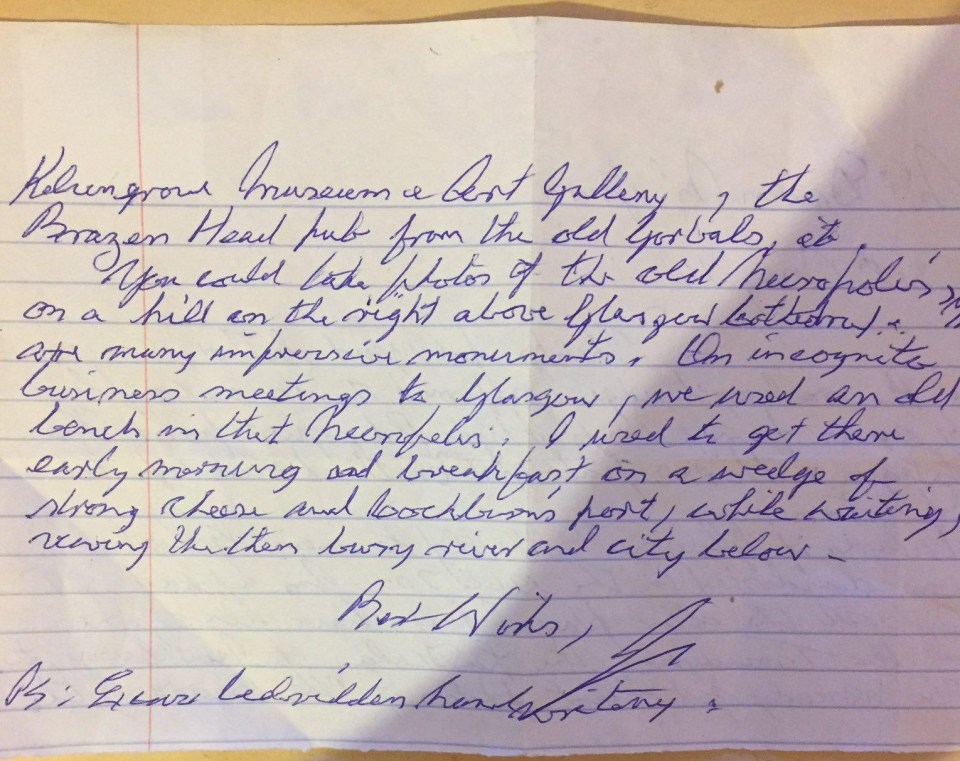 Kelvingrove Museum & Art Gallery, the
Brazen Head pub from the old Gorbals, etc.
You could take photos of the old Necropolis,
on a hill on the right above Glasgow Cathedral.
many impressive monuments. On incognito
business meetings to Glasgow, we used an old
bench in that Necropolis. I used to get there
early morning and breakfast on a wedge of
strong cheese and port, while waiting,
viewing the then busy river and city below.
Best Wishes,
PS: Excuse bedridden handwriting.